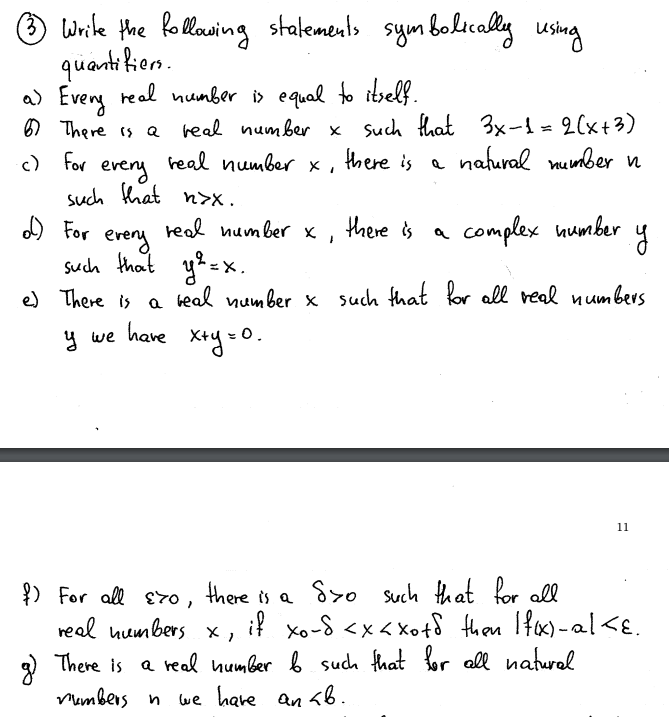 ③ Write the following statements symbolically using
quantifiers.
a) Every real number is equal to itself.
b) There is a real number x such that 3x-1 = 2(x+3)
c) For every real number x, there is a natural number n
such that n>x.
d) For every real number x, there is a complex number y
such that y²=x.
e) There is a real number x such that for all real numbers
y we have x+y=0.
11
f) For all ε>0, there is a δ>0 such that for all
real numbers x, if x₀-δ<x<x₀+δ then |f(x)-a|<ε.
g) There is a real number b such that for all natural
numbers n we have aₙ<b.